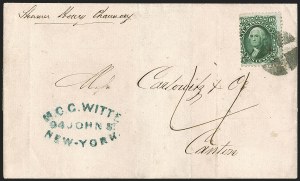 Steamer Henry Chauncey
10
Messrs
& Co
M.C.C. WITTE
94 JOHN ST
NEW-YORK
Canton